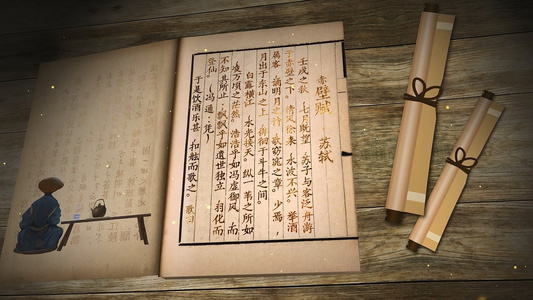 赤壁赋 苏轼
壬戌之秋，七月既望，苏子与客泛舟游
于赤壁之下。清风徐来，水波不兴。举酒
属客，诵明月之诗，歌窈窕之章。少焉，
月出于东山之上，徘徊于斗牛之间。
白露横江，水光接天。纵一苇之所如
凌万顷之茫然。浩浩乎如冯虚御风，而
不知其所止；飘飘乎如遗世独立，羽化而
登仙。（冯 通：凭）
于是饮酒乐甚，扣舷而歌之。歌曰